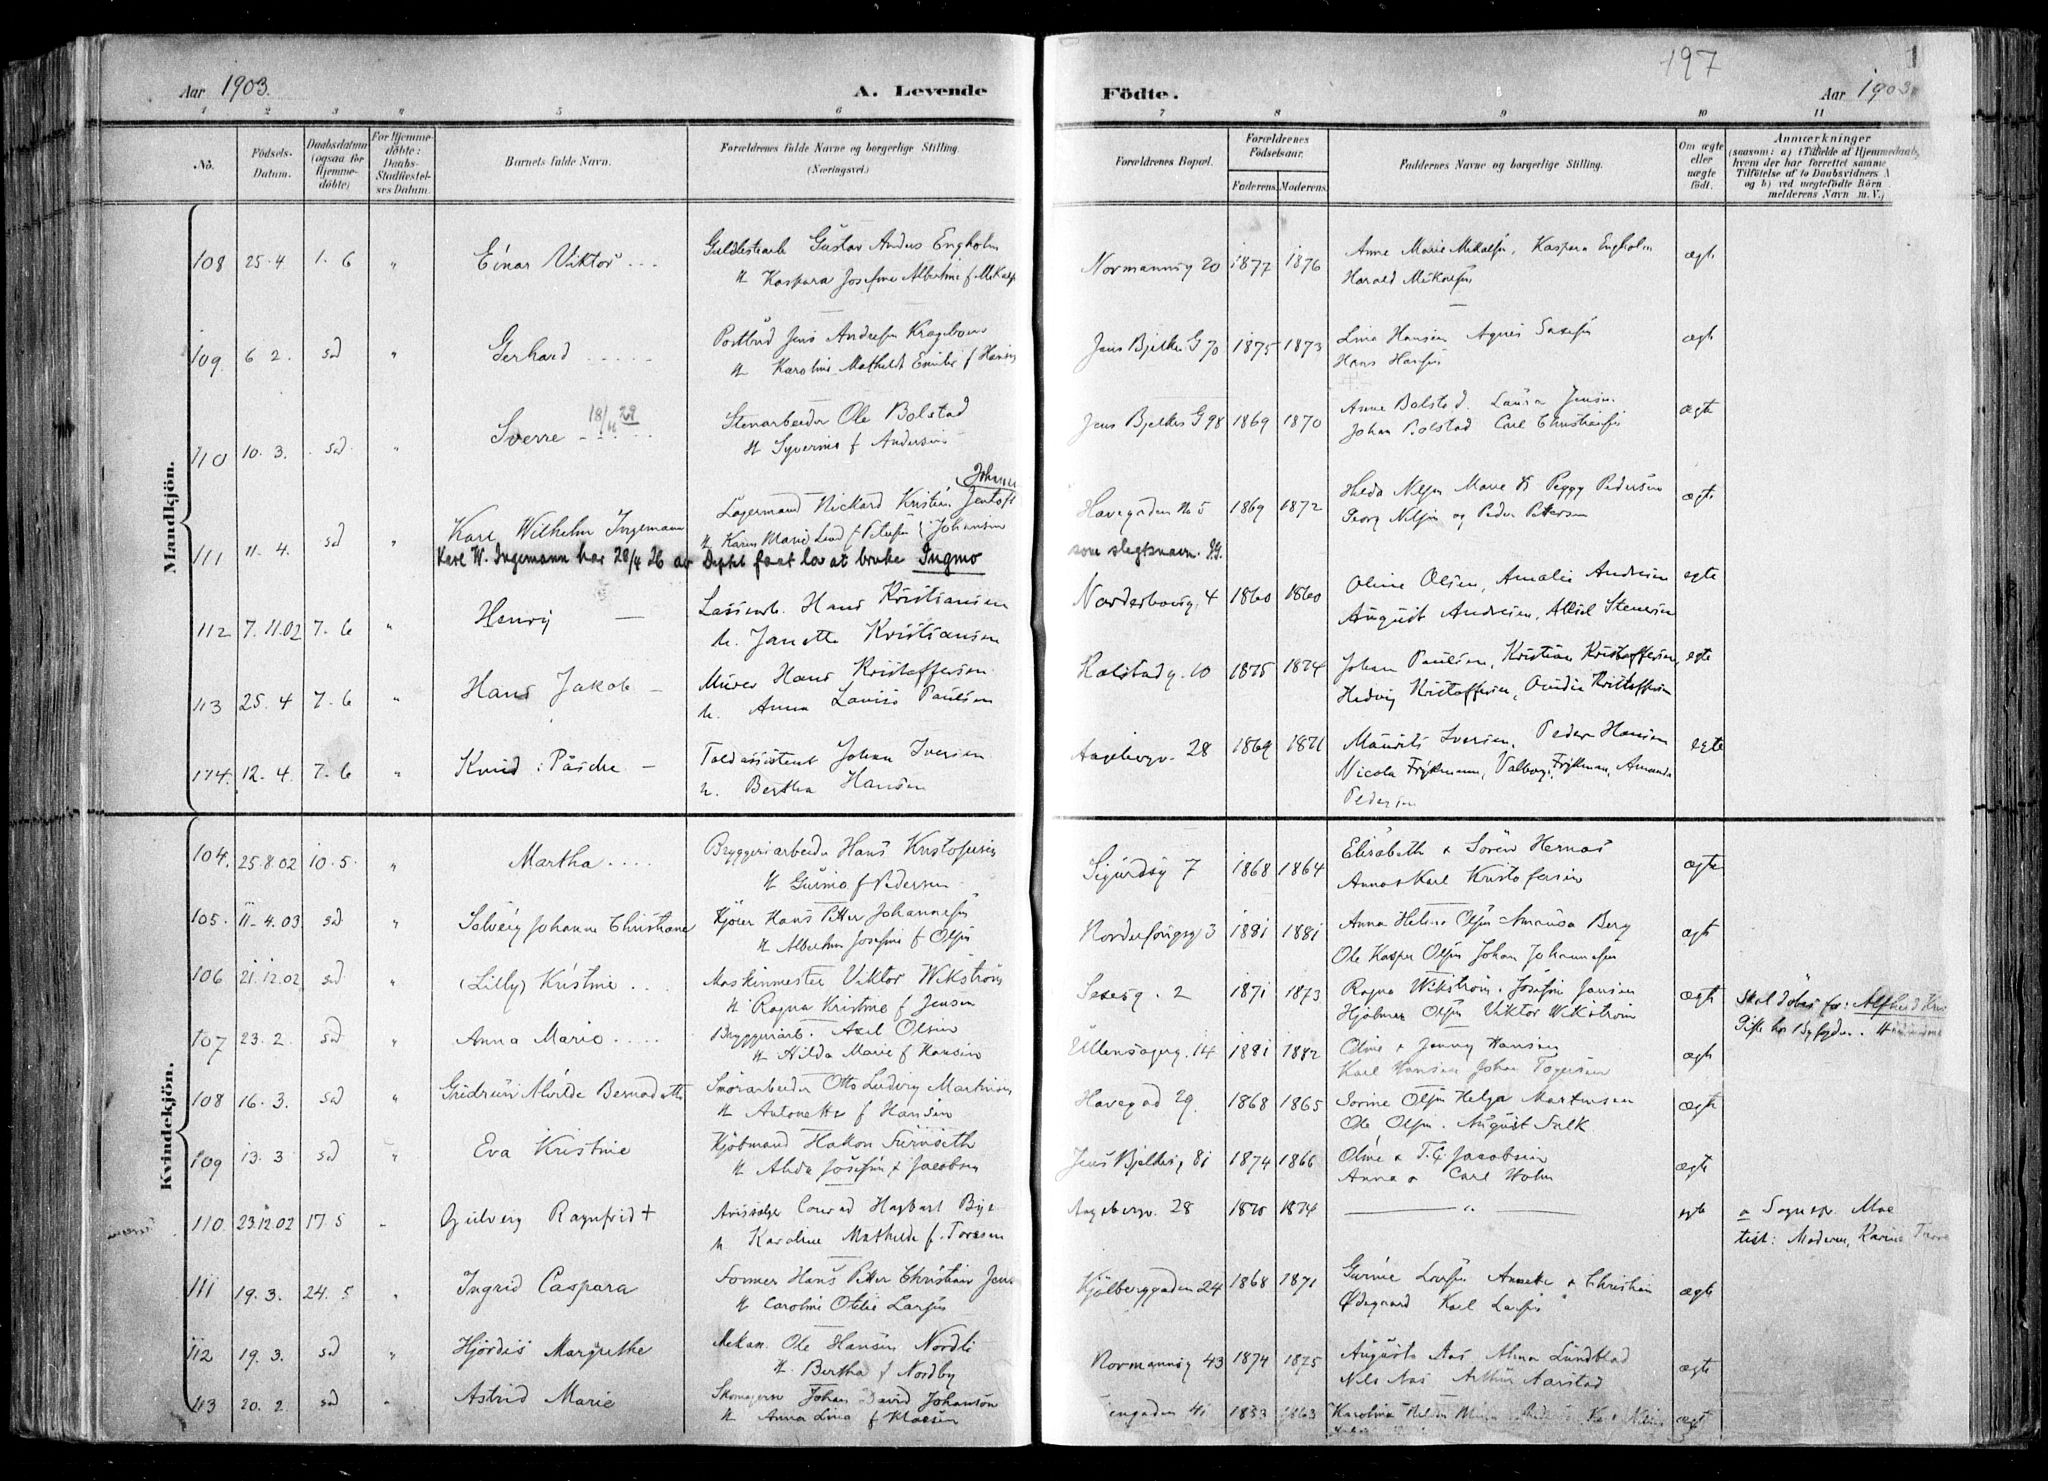 Aar 1903.
A. Levende
Födte.
197
1
Aar 1903
1 2 3 4 5 6 7 8 9 10 11
No.
Födsels-Datum.
Daabsdatum (ogsaa for Hjemmedöbte)
For Hjemmedöbte: Daabs-Stadfæstelses Datum.
Barnets fulde Navn.
Forældrenes fulde Navne og borgerlige Stilling. (Næringsvei.)
Forældrenes Bopæl.
Forældrenes Födselsaar.
Faderens. Moderens.
Faddernes Navne og borgerlige Stilling.
Om ægte eller uægte födt.
Anmærkninger
(saasom: a) i Tilfælde af Hjemmedaab,
hvem der har forrettet samme
Tilföielse af to Daabsvidners
og b) ved uægtefödte Börn
melderens Navn m. V.)
Mandkjön.
108 25.4 1.6 " Einar Viktor Gustav Anders Engholm Normannsg 20 1877 1876 Anne Marie Mikalsen, Kaspara Engholm ægte
H Kaspara Josefine Albertine f Mikals Harald Mikalsen
109 6 2. sd " Gerhard Postbud Jens Andersen Jens Bjelkes G 70 1875 1873 Lina Hansen Agnes ægte
H Karoline Mathilde Emilie f Hansen Hans Hansen
110 10.3. sd " Sverre 18/11 29 Stenarbeider Ole Bolstad Jens Bjelkes G 98 1869 1870 Anne Bolstad. Laura Jensen ægte
H Syverine f Andersen Johan Bolstad Carl Christiansen
Johanne
111 11-4. sd " Karl Wilhelm Ingemann Lagermand Rickard Kristian Jentoft Havegaden No 5 1869 1872 Hilda Nilsen Marie & Peggy Pedersen ægte
H Karen Marie Lund f Petersen Johansen Georg Nilsen og Peder Pettersen
Karl W. Ingemann har 28/4 26 av Deptet faat lov at bruke Ingmo som slegtsnavn.
112 7.11.02 7.6 " Henry Hans Kristiansen Norderhovsg. 4 1860 1860 Oline Olsen, Amalie Andresen egte
h. Janette Kristiansen August Andresen,
113 25.4 7.6 " Hans Jakob Murer Hans Kristoffersen Kalstadg. 10 1875 1874 Johan Paulsen, Kristian Kristoffersen, egte
h. Anna Lovise Paulsen Hedvig Kristoffersen, Kristoffersen
114. 12.4. 7.6 " Knud Påsche Toldassistent Johan Iversen Aagebergv. 28 1869 1871 Mauritz Iversen, Peder Hansen egte
h. Bertha Hansen Nicola Frykmann, Valborg Frykman, Amanda
Pedersen
Kvindekjön.
104. 25.8.02 10.5. " Martha Bryggeriarbeider Hans Kristofersen Sigurdsg 7 1868 1864 Elisabeth & Sören Hernæs ægte
H f Pedersen Anna & Karl Kristofersen
105. 11-4.03 sd " Solveig Johanne Christiane Kjører Hans Petter Johannesen 3 1881 1881 Anna Helene Olsen Amanda Berg ægte
H Albertine Josefine f Olsen Ole Kasper Olsen Johan Johannesen
106 21.12.02 sd " (Lilly) Kristine Maskinmester Viktor Wikström 2 1871 1873 Ragna Wikström. Josefine Jansen ægte Skal döbes
H Ragna Kristine f Jensen Hjalmar Olsen Viktor Wikström
107 23.2. sd " Anna Marie Bryggeriarb. Axel Olsen Ullensagerg. 14 1881 1882 Oline & Jenny Hansen ægte
H Hilda Marie f Hansen Karl Hansen Johan Togersen
108 16.3. sd " Gudrun Alvilde Bernadotte Otto Ludvig Martinsen Havegad 29. 1868 1865 Sorine Olsen Helga Martinsen ægte
H Antonette f Hansen Ole Olsen. August Falk
109 13.3 sd " Eva Kristine Kjöbmand Hakon Furuseth Jens Bjelkesg 81 1874 1866 Oline & T. G. Jacobsen ægte
H Alida Josefine f Jacobsen Anna & Carl Holm
110 23.12.02 17.5 Ragnfrid + Avissælger Conrad Hagbart Bye Aagebergv. 28 1870 1874 egte a Sognepr.
h Karoline Mathilde f. Toresen test: Moderen, Karine
111 19.3. 24.5 " Ingrid Caspara Former Hans Petter Christian Jen Kjölberggaden 24 1868 1871 Annette & Christian ægte
H Caroline Otilie Larsen Ødegaard Karl Larsen
112 19.3. sd " Hjördis Margrethe Mekan. Ole Hansen Nordli Normannsg 43 1874 1875 Augusta Aas Alma Lundblad ægte
H. Bertha f Nordby Nils Aas Arthur Aarstad
113 20.2. sd " Astrid Marie Skomager Johan David Johanson 41 1863 Karoline Nilsen ægte
H Anna Lina f Klaesen